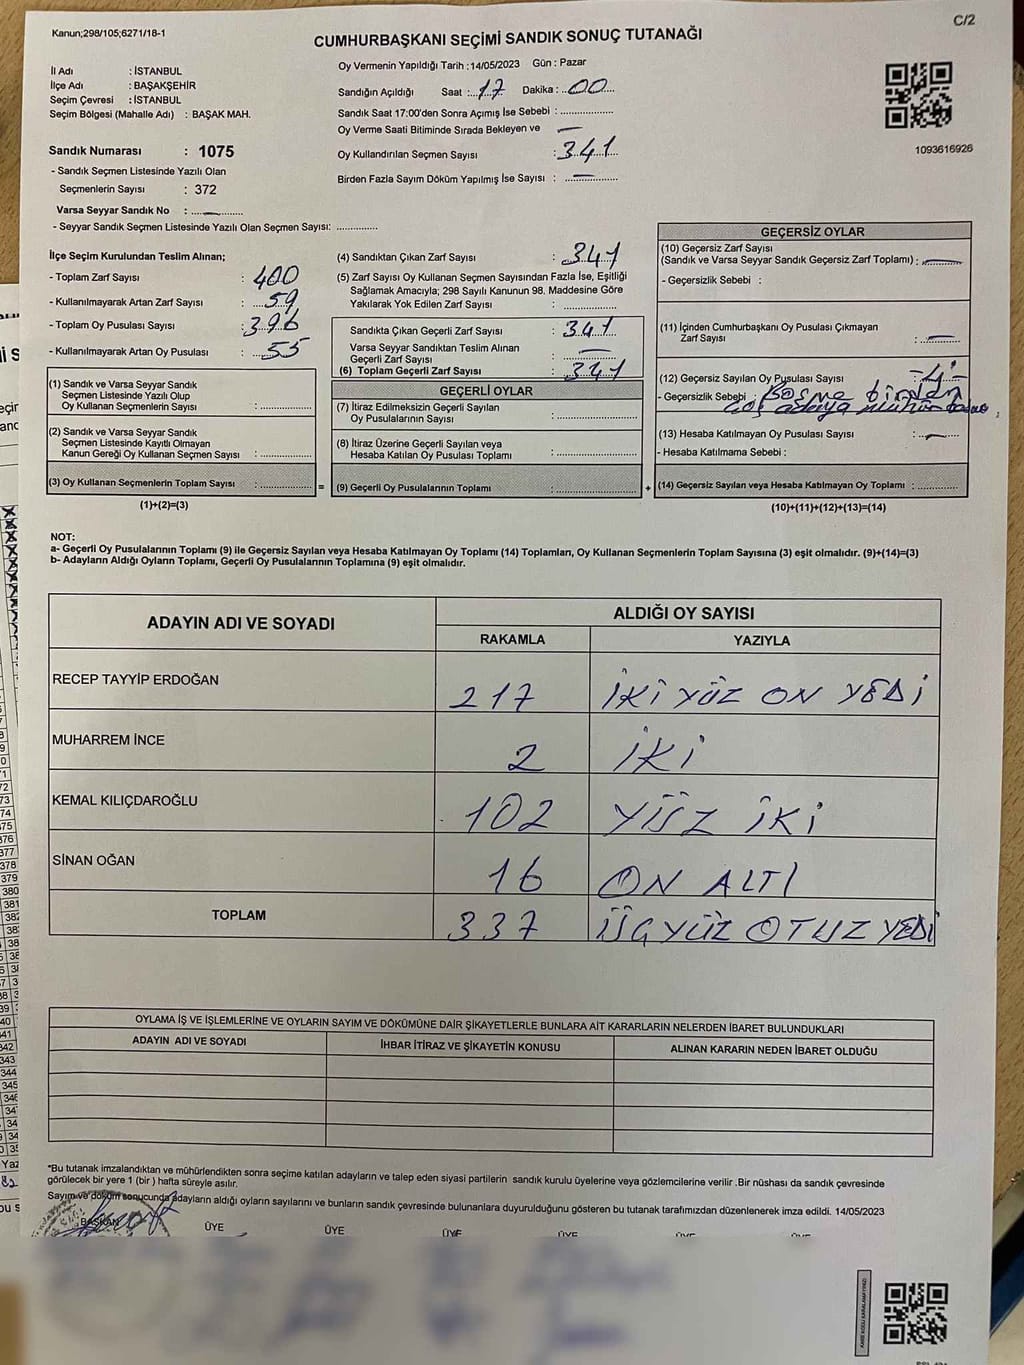 Kanun;298/105;6271/18-1
C/2
CUMHURBAŞKANI SEÇİMİ SANDIK SONUÇ TUTANAĞI
İl Adı : İSTANBUL
İlçe Adı : BAŞAKŞEHİR
Seçim Çevresi : İSTANBUL
Seçim Bölgesi (Mahalle Adı) : BAŞAK MAH.
Sandık Numarası : 1075
- Sandık Seçmen Listesinde Yazılı Olan
Seçmenlerin Sayısı : 372
Varsa Seyyar Sandık No :
- Seyyar Sandık Seçmen Listesinde Yazılı Olan Seçmen Sayısı:
Oy Vermenin Yapıldığı Tarih :14/05/2023 Gün : Pazar
Sandığın Açıldığı Saat : 17 Dakika : 00
Sandık Saat 17:00'den Sonra Açımış İse Sebebi :
Oy Verme Saati Bitiminde Sırada Bekleyen ve
Oy Kullandırılan Seçmen Sayısı : 341
Birden Fazla Sayım Döküm Yapılmış İse Sayısı :
1093616926
İlçe Seçim Kurulundan Teslim Alınan;
- Toplam Zarf Sayısı : 400
- Kullanılmayarak Artan Zarf Sayısı : 59
- Toplam Oy Pusulası Sayısı : 396
- Kullanılmayarak Artan Oy Pusulası : 55
(1) Sandık ve Varsa Seyyar Sandık
Seçmen Listesinde Yazılı Olup
Oy Kullanan Seçmenlerin Sayısı :
(2) Sandık ve Varsa Seyyar Sandık
Seçmen Listesinde Kayıtlı Olmayan
Kanun Gereği Oy Kullanan Seçmen Sayısı :
(3) Oy Kullanan Seçmenlerin Toplam Sayısı :
(1)+(2)=(3)
(4) Sandıktan Çıkan Zarf Sayısı : 341
(5) Zarf Sayısı Oy Kullanan Seçmen Sayısından Fazla İse, Eşitliği
Sağlamak Amacıyla; 298 Sayılı Kanunun 98. Maddesine Göre
Yakılarak Yok Edilen Zarf Sayısı :
Sandıkta Çıkan Geçerli Zarf Sayısı : 341
Varsa Seyyar Sandıktan Teslim Alınan
Geçerli Zarf Sayısı :
(6) Toplam Geçerli Zarf Sayısı : 341
GEÇERLİ OYLAR
(7) İtiraz Edilmeksizin Geçerli Sayılan
Oy Pusulalarının Sayısı :
(8) İtiraz Üzerine Geçerli Sayılan veya
Hesaba Katılan Oy Pusulası Toplamı :
= (9) Geçerli Oy Pusulalarının Toplamı :
GEÇERSİZ OYLAR
(10) Geçersiz Zarf Sayısı
(Sandık ve Varsa Seyyar Sandık Geçersiz Zarf Toplamı) :
- Geçersizlik Sebebi :
(11) İçinden Cumhurbaşkanı Oy Pusulası Çıkmayan
Zarf Sayısı :
(12) Geçersiz Sayılan Oy Pusulası Sayısı : -4-
- Geçersizlik Sebebi : birden
(13) Hesaba Katılmayan Oy Pusulası Sayısı :
- Hesaba Katılmama Sebebi :
+ (14) Geçersiz Sayılan veya Hesaba Katılmayan Oy Toplamı :
(10)+(11)+(12)+(13)=(14)
NOT:
a- Geçerli Oy Pusulalarının Toplamı (9) ile Geçersiz Sayılan veya Hesaba Katılmayan Oy Toplamı (14) Toplamları, Oy Kullanan Seçmenlerin Toplam Sayısına (3) eşit olmalıdır. (9)+(14)=(3)
b- Adayların Aldığı Oyların Toplamı, Geçerli Oy Pusulalarının Toplamına (9) eşit olmalıdır.
ADAYIN ADI VE SOYADI
ALDIĞI OY SAYISI
RAKAMLA YAZIYLA
RECEP TAYYİP ERDOĞAN 217 İKİ YÜZ ON YEDİ
MUHARREM İNCE 2 İKİ
KEMAL KILIÇDAROĞLU 102 YÜZ İKİ
SİNAN OĞAN 16 ON ALTI
TOPLAM 337 ÜÇYÜZ OTUZ YEDİ
OYLAMA İŞ VE İŞLEMLERİNE VE OYLARIN SAYIM VE DÖKÜMÜNE DAİR ŞİKAYETLERLE BUNLARA AİT KARARLARIN NELERDEN İBARET BULUNDUKLARI
ADAYIN ADI VE SOYADI İHBAR İTİRAZ VE ŞİKAYETİN KONUSU ALINAN KARARIN NEDEN İBARET OLDUĞU
*Bu tutanak imzalandıktan ve mühürlendikten sonra seçime katılan adayların ve talep eden siyasi partilerin sandık kurulu üyelerine veya gözlemcilerine verilir .Bir nüshası da sandık çevresinde
görülecek bir yere 1 (bir ) hafta süreyle asılır.
Sayım ve döküm sonucunda adayların aldığı oyların sayılarını ve bunların sandık çevresinde bulunanlara duyurulduğunu gösteren bu tutanak tarafımızdan düzenlenerek imza edildi. 14/05/2023
BAŞKAN ÜYE ÜYE ÜYE ÜYE ÜYE ÜYE